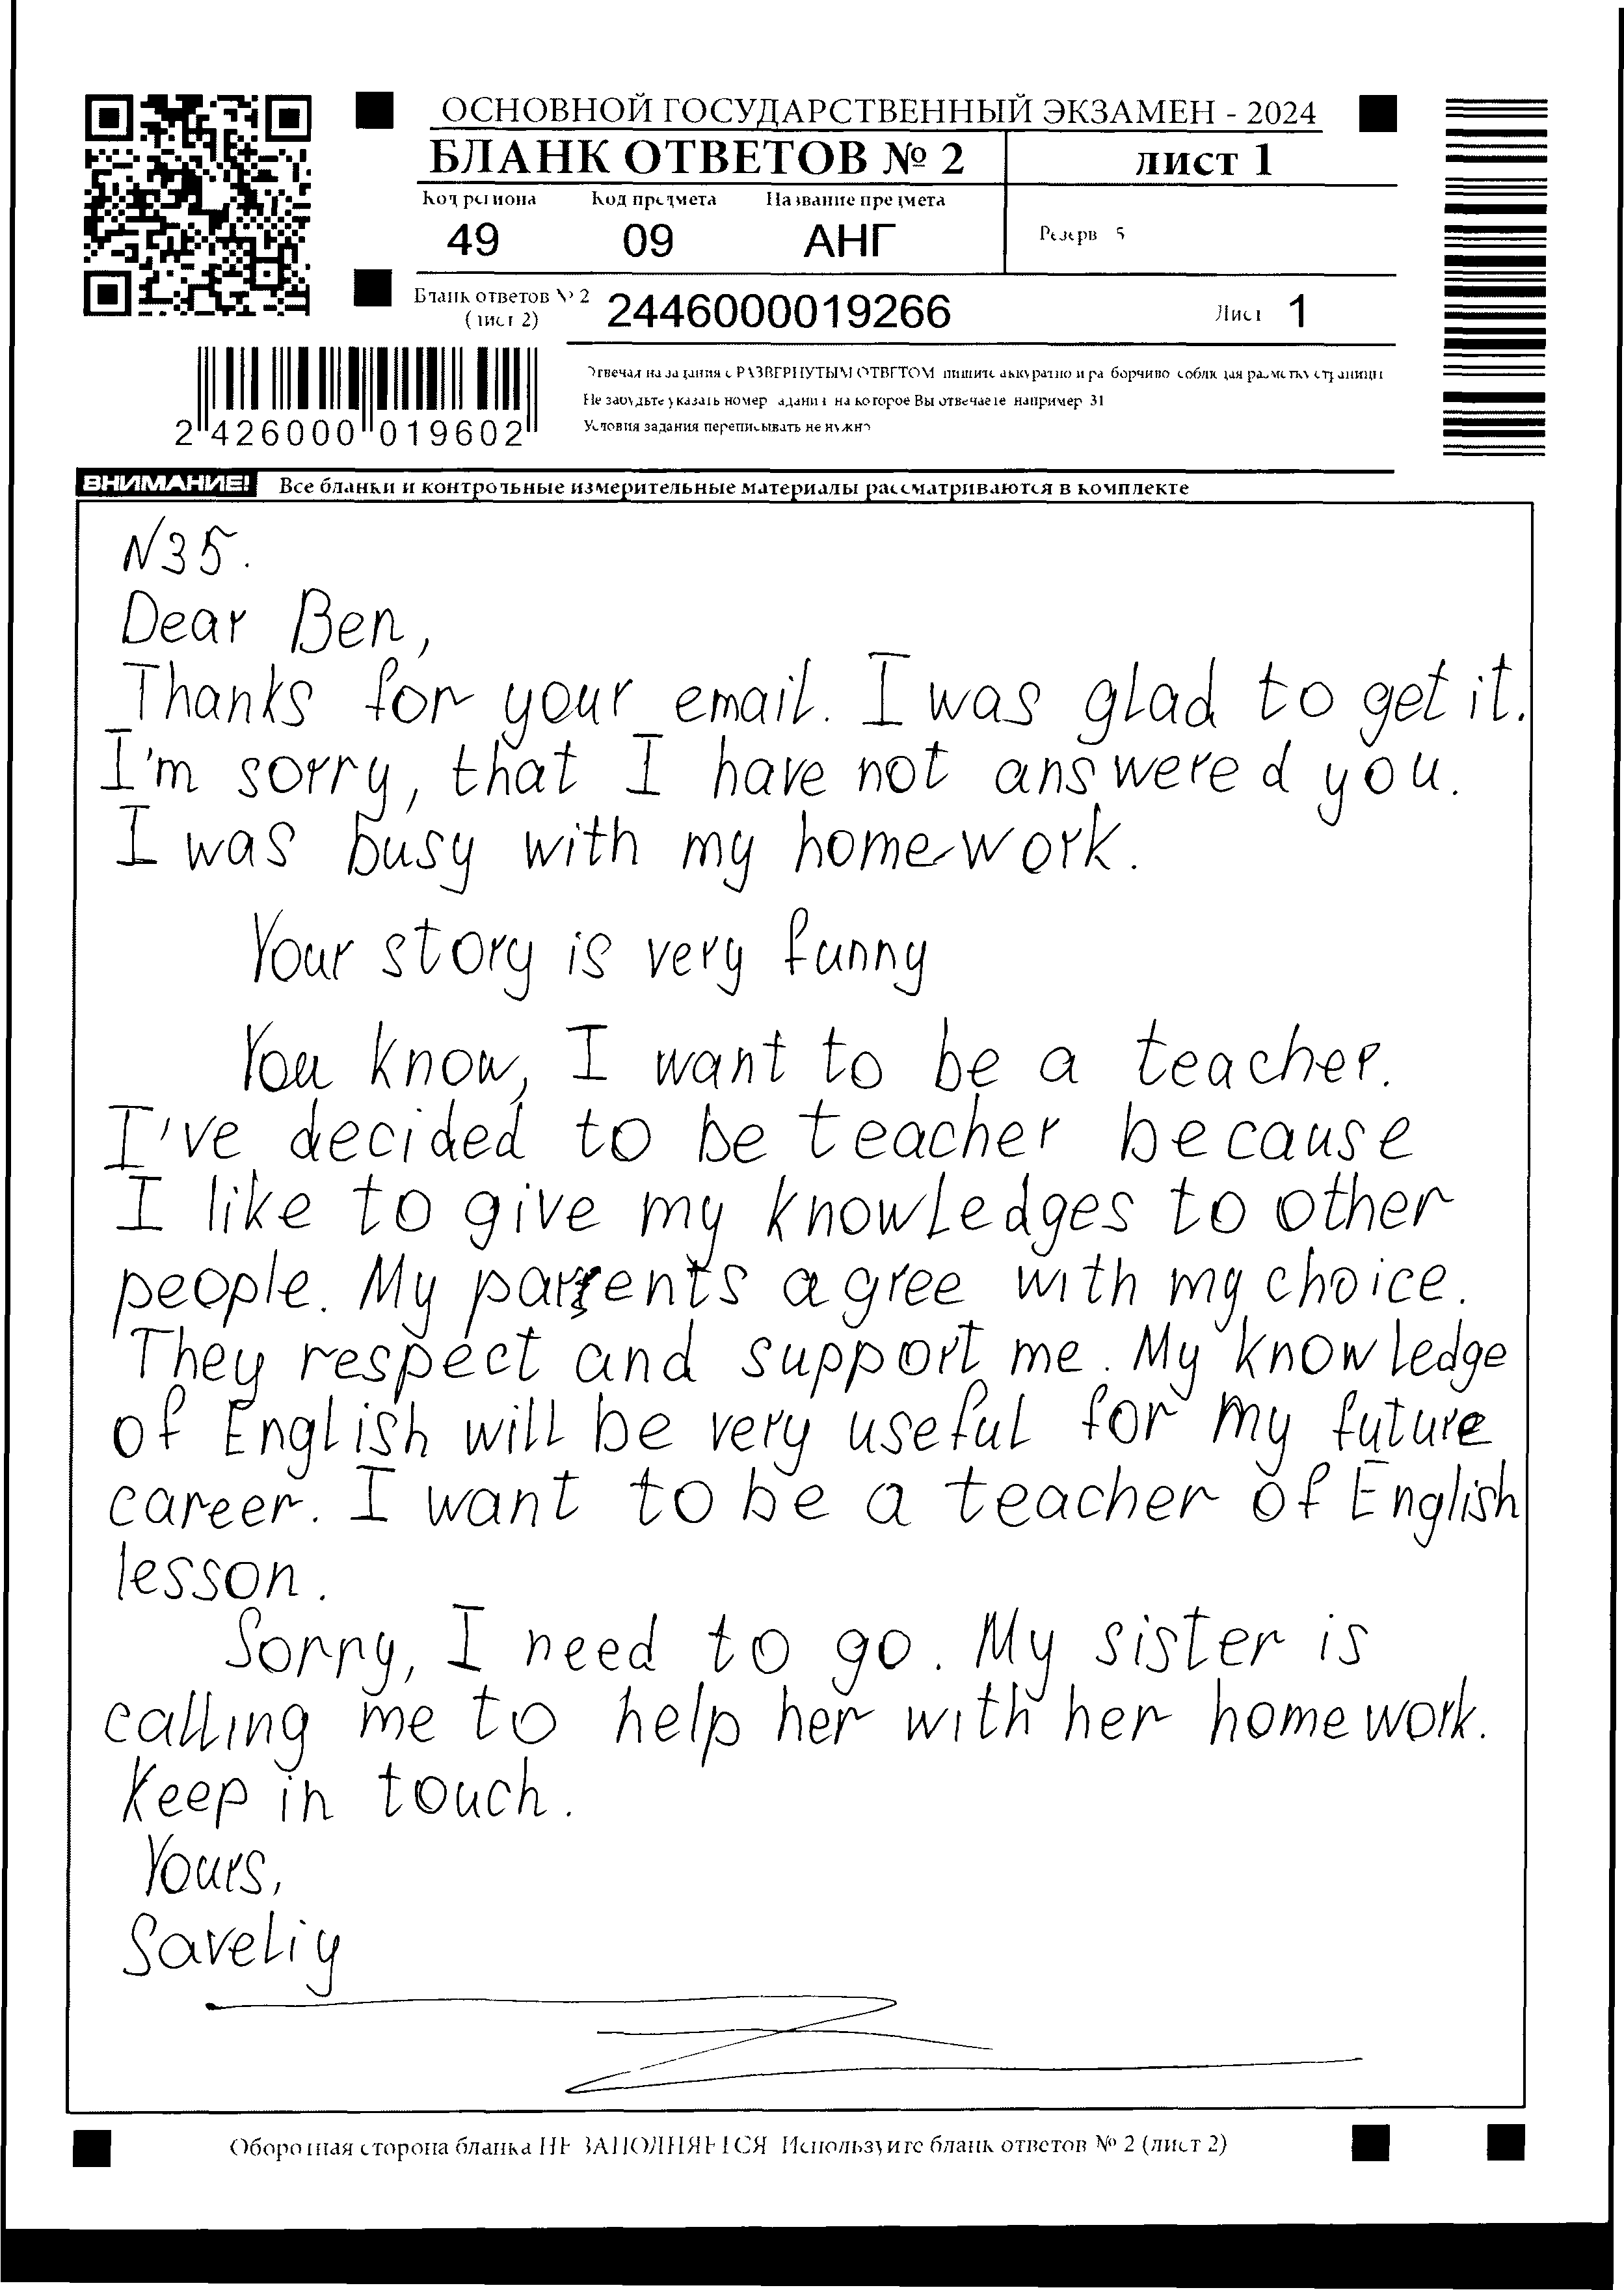 ОСНОВНОЙ ГОСУДАРСТВЕННЫЙ ЭКЗАМЕН - 2024
БЛАНК ОТВЕТОВ № 2
лист 1
Код региона
Код предмета
Название предмета
49
09
АНГ
Резерв 5
Бланк ответов № 2
(лист 2)
2446000019266
Лист 1
Отвечая на задания с РАЗВЕРНУТЫМ ОТВЕТОМ пишите аккуратно и разборчиво соблюдая разметку страницы
Не забудьте указать номер задания на которое Вы отвечаете например 31
Условия задания переписывать не нужно
2 426000 019602
ВНИМАНИЕ! Все бланки и контрольные измерительные материалы рассматриваются в комплекте
N35.
Dear Ben,
Thanks for your email. I was glad to get it.
I'm sorry, that I have not answered you.
I was busy with my homework.
Your story is very funny
You know, I want to be a teacher.
I've decided to be teacher because
I like to give my knowledges to other
people. My parents agree with my choice.
They respect and support me. My knowledge
of English will be very useful for my future
career. I want to be a teacher of English
lesson.
Sorry, I need to go. My sister is
calling me to help her with her homework.
Keep in touch.
Yours,
Saveliy
Оборотная сторона бланка НЕ ЗАПОЛНЯЕТСЯ Используйте бланк ответов № 2 (лист 2)